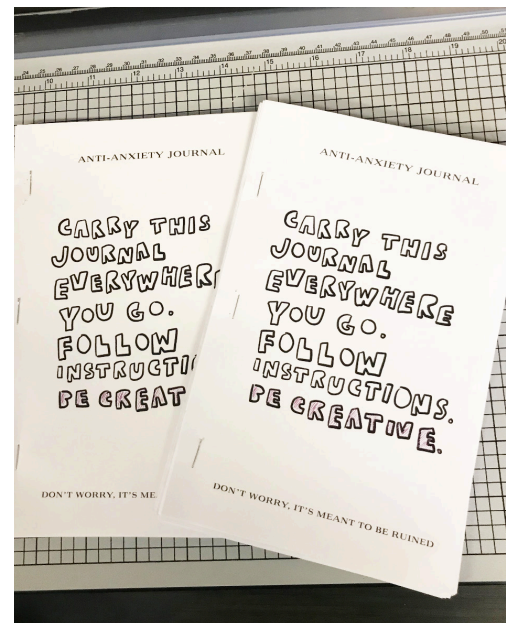 ANTI-ANXIETY JOURNAL
CARRY THIS
JOURNAL
EVERYWHERE
YOU GO.
FOLLOW
INSTRUCTI
BE CREAT
DON'T WORRY, IT'S ME
ANTI-ANXIETY JOURNAL
CARRY THIS
JOURNAL
EVERYWHERE
YOU GO.
FOLLOW
INSTRUCTIONS.
BE CREATIVE.
DON'T WORRY, IT'S MEANT TO BE RUINED